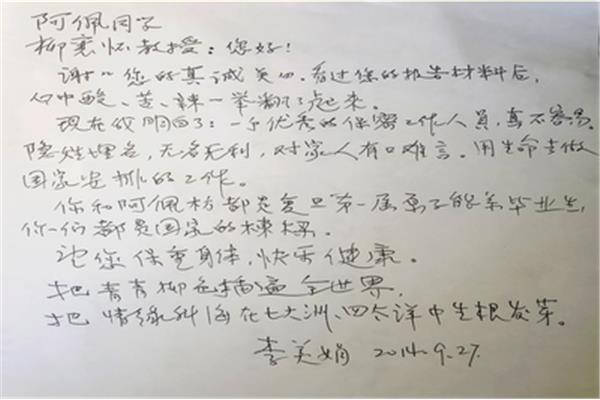 阿佩同学
柳襄怀教授：您好！
谢谢您的真诚关心。看过您的报告材料后，
心中酸、苦、辣一举翻了起来。
现在我明白了：一个优秀的保密工作人员，真不容易。
隐姓埋名，无名无利，对家人有口难言。用生命去做
国家安排的工作。
你和阿佩校都是复旦第一届原子能系毕业生，
你们都是国家的栋梁。
望您保重身体，快乐健康。
把青青柳色插遍全世界，
把情缘种 在七大洲、四大洋中生根发芽。
李美娟 2014.9.27.